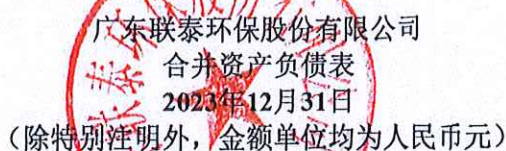 广东联泰环保股份有限公司
合并资产负债表
2023年12月31日
（除特别注明外，金额单位均为人民币元）